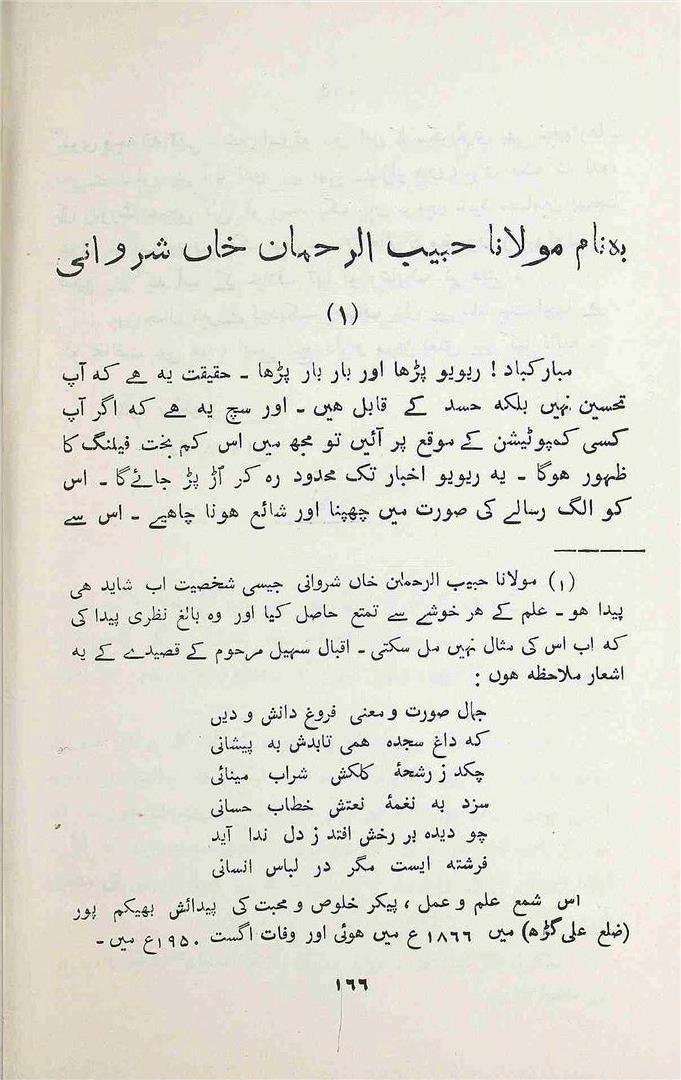 بہ نام مولانا حبیب الرحمان خاں شروانی
(۱)
مبارکباد! ریویو پڑھا اور بار بار پڑھا ۔ حقیقت یہ ھے کہ آپ
تحسین نہیں بلکہ حسد کے قابل ھیں ۔ اور سچ یہ ھے کہ اگر آپ
کسی کمپوٹیشن کے موقع پر آئیں تو مجھ میں اس کم بخت فیلنگ کا
ظہور ھوگا ۔ یہ ریویو اخبار تک محدود رہ کر آڑ پڑ جائے گا ۔ اس
کو الگ رسالے کی صورت میں چھپنا اور شائع ھونا چاھیے ۔ اس سے
(۱) مولانا حبیب الرحمان خاں شروانی جیسی شخصیت اب شاید ھی
پیدا ھو ۔ علم کے ھر خوشے سے تمتع حاصل کیا اور وہ بالغ نظری پیدا کی
کہ اب اس کی مثال نہیں مل سکتی ۔ اقبال سہیل مرحوم کے قصیدے کے یہ
اشعار ملاحظہ ھوں :
جمال صورت و معنی فروغ دانش و دیں
کہ داغ سجدہ ھمی تابدش بہ پیشانی
چکد ز رشحۂ کلکش شراب مینائی
سزد بہ نغمۂ نعتش خطاب حسانی
چو دیدہ بر رخش افتد ز دل ندا آید
فرشتہ ایست مگر در لباس انسانی
اس شمع علم و عمل ، پیکر خلوص و محبت کی پیدائش بھیکم پور
(ضلع علی گڑھ) میں ۱۸۶۶ع میں ھوئی اور وفات اگست ۱۹۵۰ع میں ۔
۱۶۶